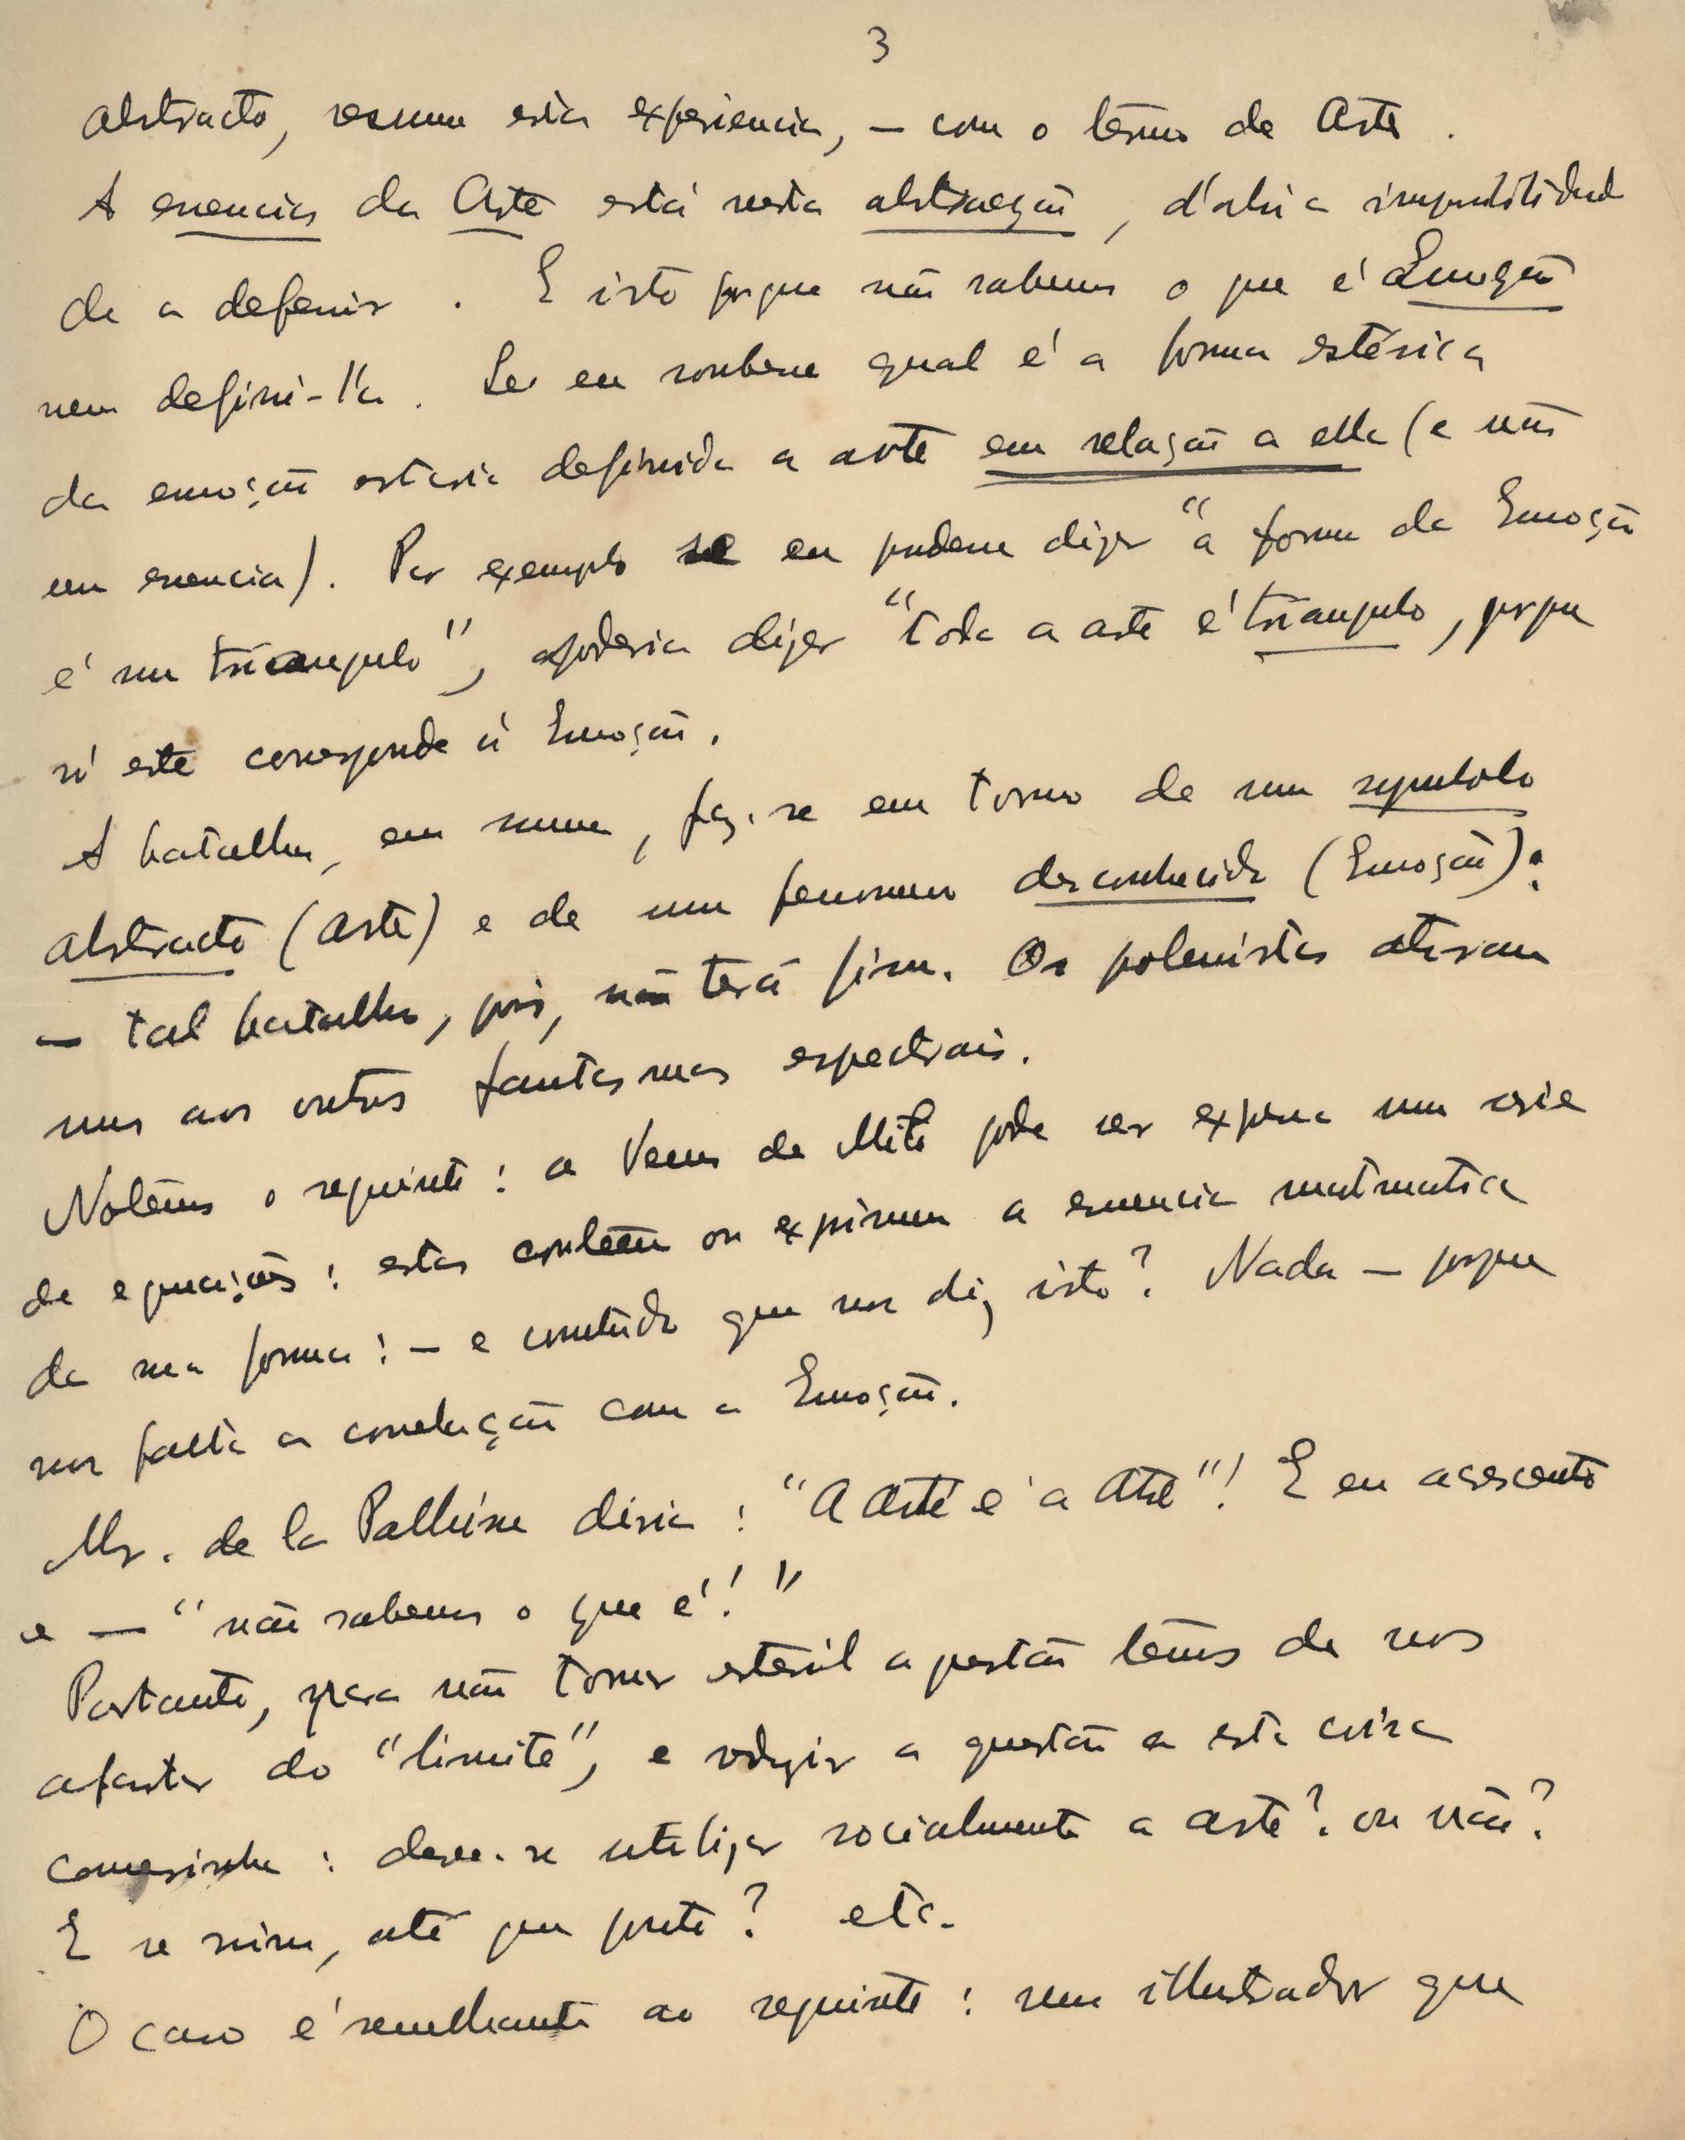 3
abstracto, resume esta experiencia, – com o têrmo de Arte.
A essencia da Arte está nesta abstracção, d'ahi a impossibilidade
de a defenir. E isto porque não sabemos o que é Emoção
nem defini-l'a. Se eu soubesse qual é a forma estésica
da emoção estaria definida a arte em relação a ella (e não
em essencia). Por exemplo se eu pudesse dizer "a forma da Emoção
é um triangulo", poderia dizer "toda a arte é triangulo, porque
só este corresponde á Emoção.
A batalha, em summa, faz-se em torno de um symbolo
abstracto (Arte) e de um fenomeno desconhecido (Emoção):
– tal batalha, pois, não terá fim. Os polemistas atiram
uns aos outros fantasmas espectrais.
Notêmos o seguinte: a Venus de Milo pode ser expressa numa serie
de equações: estas contêem ou exprimem a essencia matematica
da sua forma: – e comtudo que nos diz isto? Nada – porque
nos falta a correlação com a Emoção.
Mr. de la Pallisse diria: "A Arte é a Arte"! E eu acrescento
e – "não sabemos o que é!"
Portanto, para não tornar estéril a questão têmos de nos
afastar do "limite", e redigir a questão a esta coisa
comesinha: deve-se utilizar socialmente a arte? ou não?
E se sim, até que ponto? etc.
O caso é semelhante ao seguinte: um illustrador que